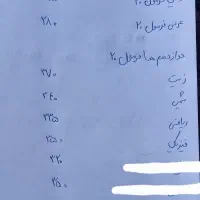 ۲۸۰ عربی فرمول ۲۰
دوازدهم ها فرمول ۲۰
زیست ۳۷۰
شیمی ۲۴۰
ریاضی ۳۳۵
فیزیک ۲۵۰
۳۲۰
۲۵۰